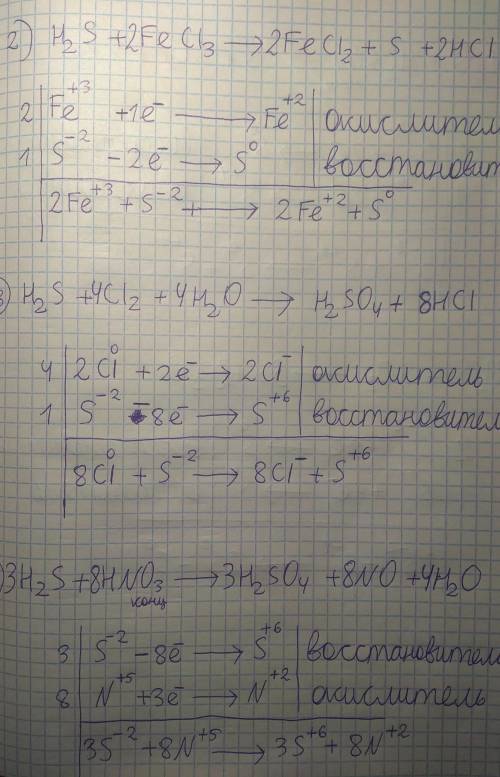 2) H₂S + 2FeCl₃ → 2FeCl₂ + S + 2HCl
2 | Fe⁺³ + 1e⁻ → Fe⁺² | окислител
1 | S⁻² - 2e⁻ → S⁰ | восстановит
2Fe⁺³ + S⁻² + → 2Fe⁺² + S⁰
3) H₂S + 4Cl₂ + 4H₂O → H₂SO₄ + 8HCl
4 | 2Cl⁰ + 2e⁻ → 2Cl⁻ | окислитель
1 | S⁻² - 8e⁻ → S⁺⁶ | восстановител
8Cl⁰ + S⁻² → 8Cl⁻ + S⁺⁶
) 3H₂S + 8HNO₃ → 3H₂SO₄ + 8NO + 4H₂O
конц
3 | S⁻² - 8e⁻ → S⁺⁶ | восстановител
8 | N⁺⁵ + 3e⁻ → N⁺² | окислитель
3S⁻² + 8N⁺⁵ → 3S⁺⁶ + 8N⁺²